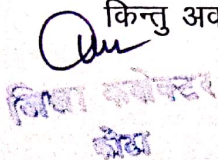 किन्तु अव
जिला कलेक्टर
कोटा